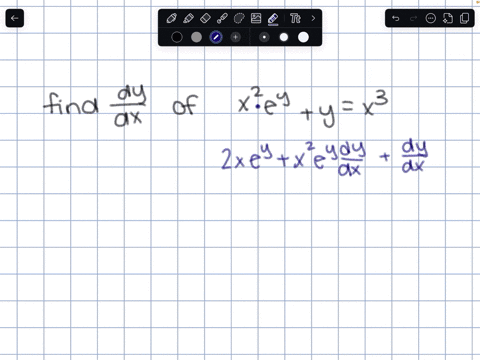 Tt
find dy/dx of x²·e^y + y = x³
2xe^y + x²e^y dy/dx + dy/dx